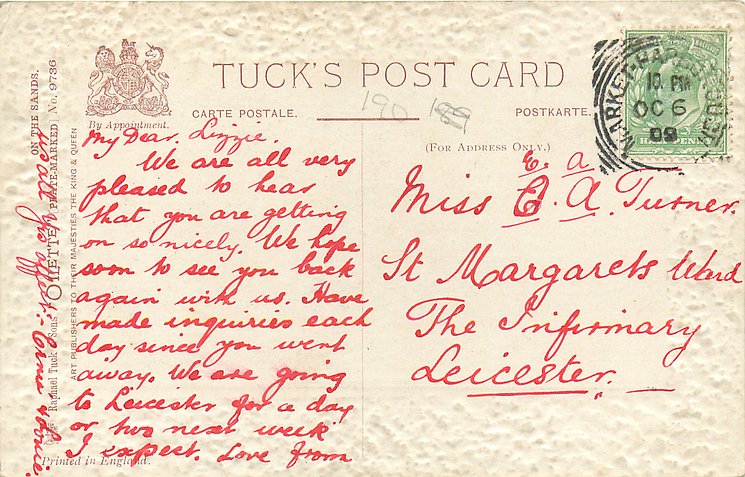 TUCK'S POST CARD
CARTE POSTALE.
POSTKARTE.
By Appointment.
(FOR ADDRESS ONLY.)
190
189
MARKET HARBOROUGH
10 PM
OC 6
09
HALFPENNY
My Dear Lizzie.
We are all very
pleased to hear
that you are getting
on so nicely. We hope
soon to see you back
again with us. Have
made inquiries each
day since you went
away. We are going
to Leicester for a day
or two next week
I expect. Love from
us all yrs affect:
E. a
Miss E. A. Turner.
St Margarets Ward
The Infirmary
Leicester.
"ON THE SANDS.
OILETTE" [PLATE-MARKED] No. 9736
Raphael Tuck & Sons
ART PUBLISHERS TO THEIR MAJESTIES THE KING & QUEEN
Printed in England.